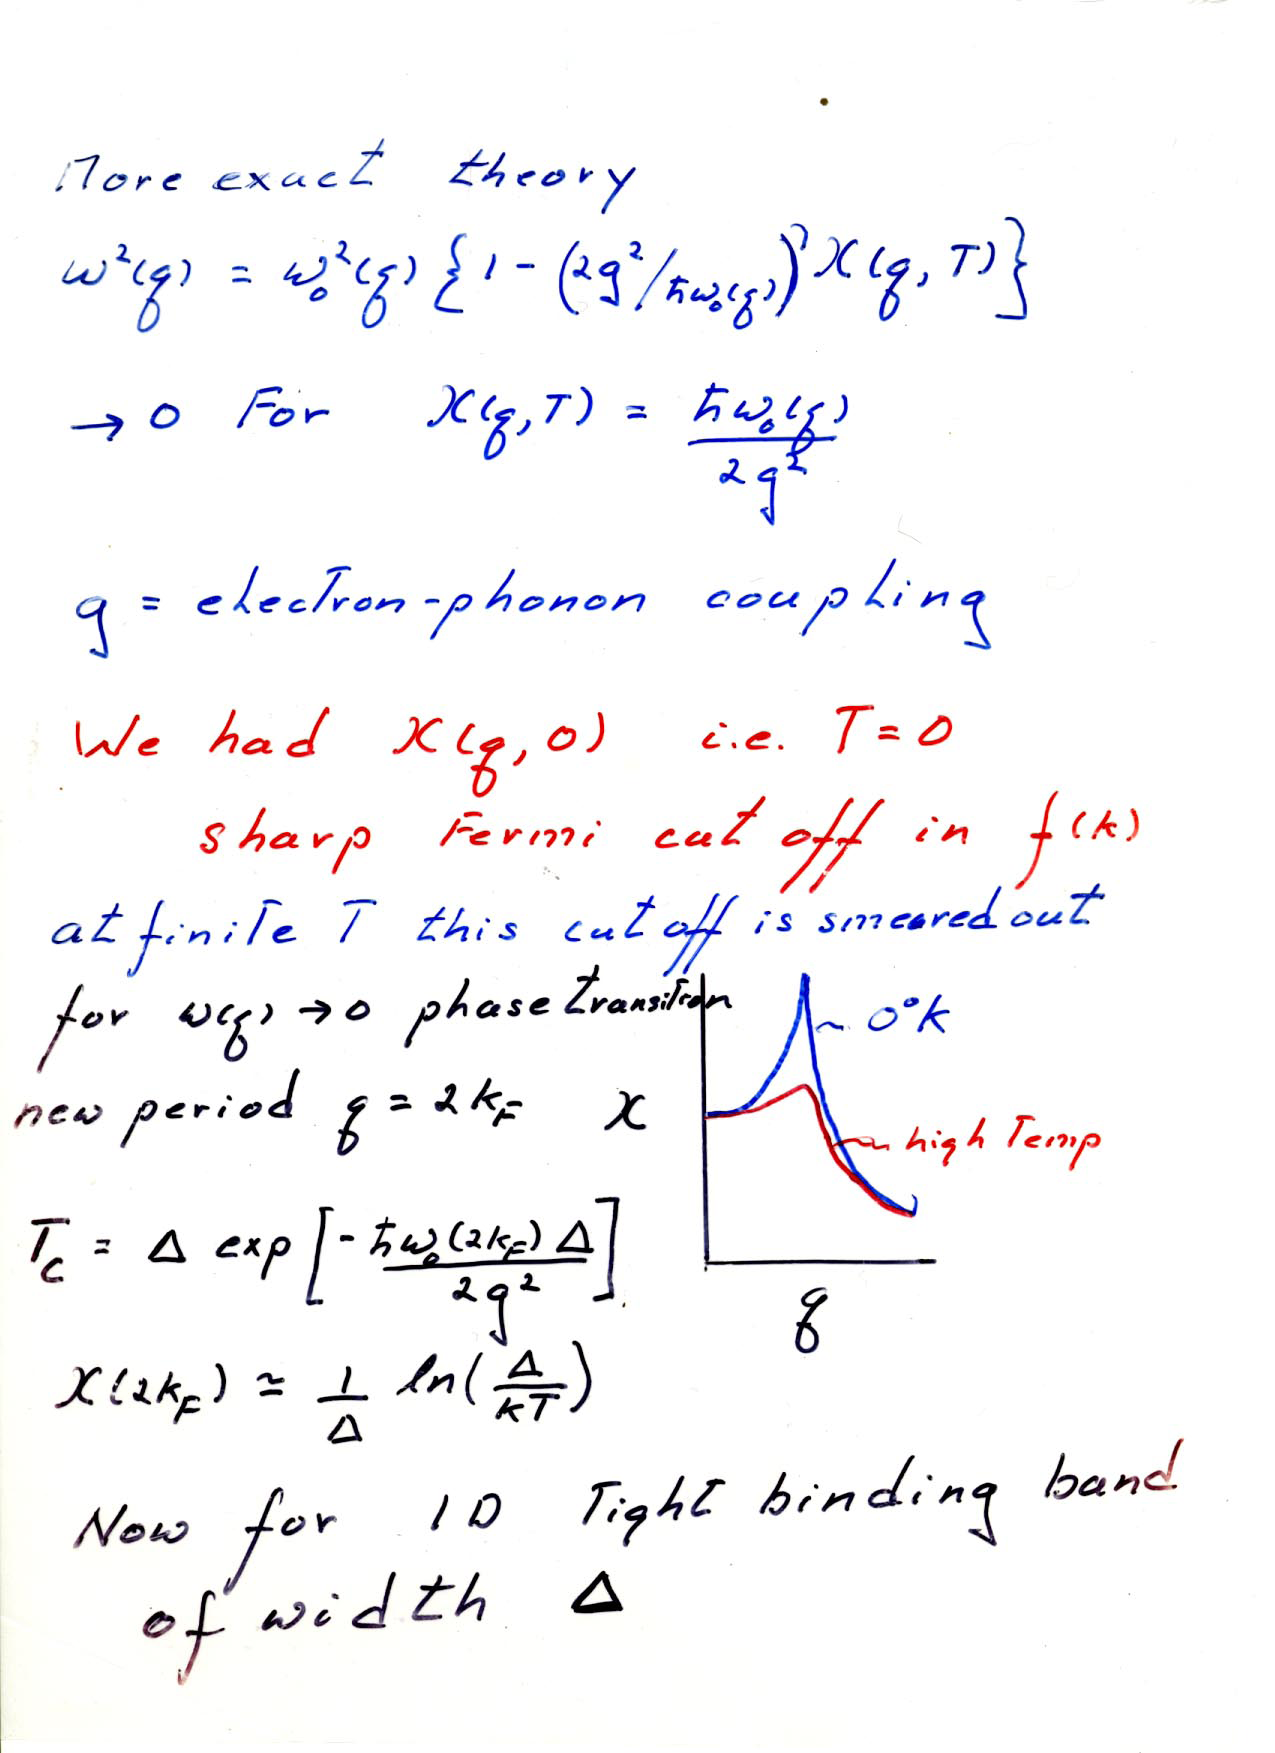 More exact theory
ω²(q) = ω₀²(q) {1 - (2g²/ħω₀(q)) χ(q, T)}
→ 0 For χ(q,T) = ħω₀(q) / 2g²
g = electron-phonon coupling
We had χ(q, 0) i.e. T=0
sharp Fermi cut off in f(k)
at finite T this cut off is smeared out
for ω(q) → 0 phase transition
new period q = 2k_F
χ
~ 0°K
~ high Temp
q
T_c = Δ exp [- ħω₀(2k_F) Δ / 2g²]
χ(2k_F) ≃ 1/Δ ln(Δ/kT)
Now for 1D Tight binding band
of width Δ